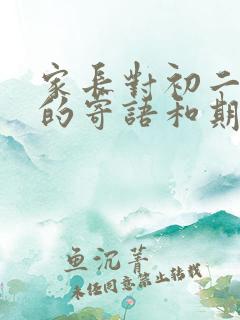 家长對初二
的寄語和期
鱼沉菁
未经同意禁止转载